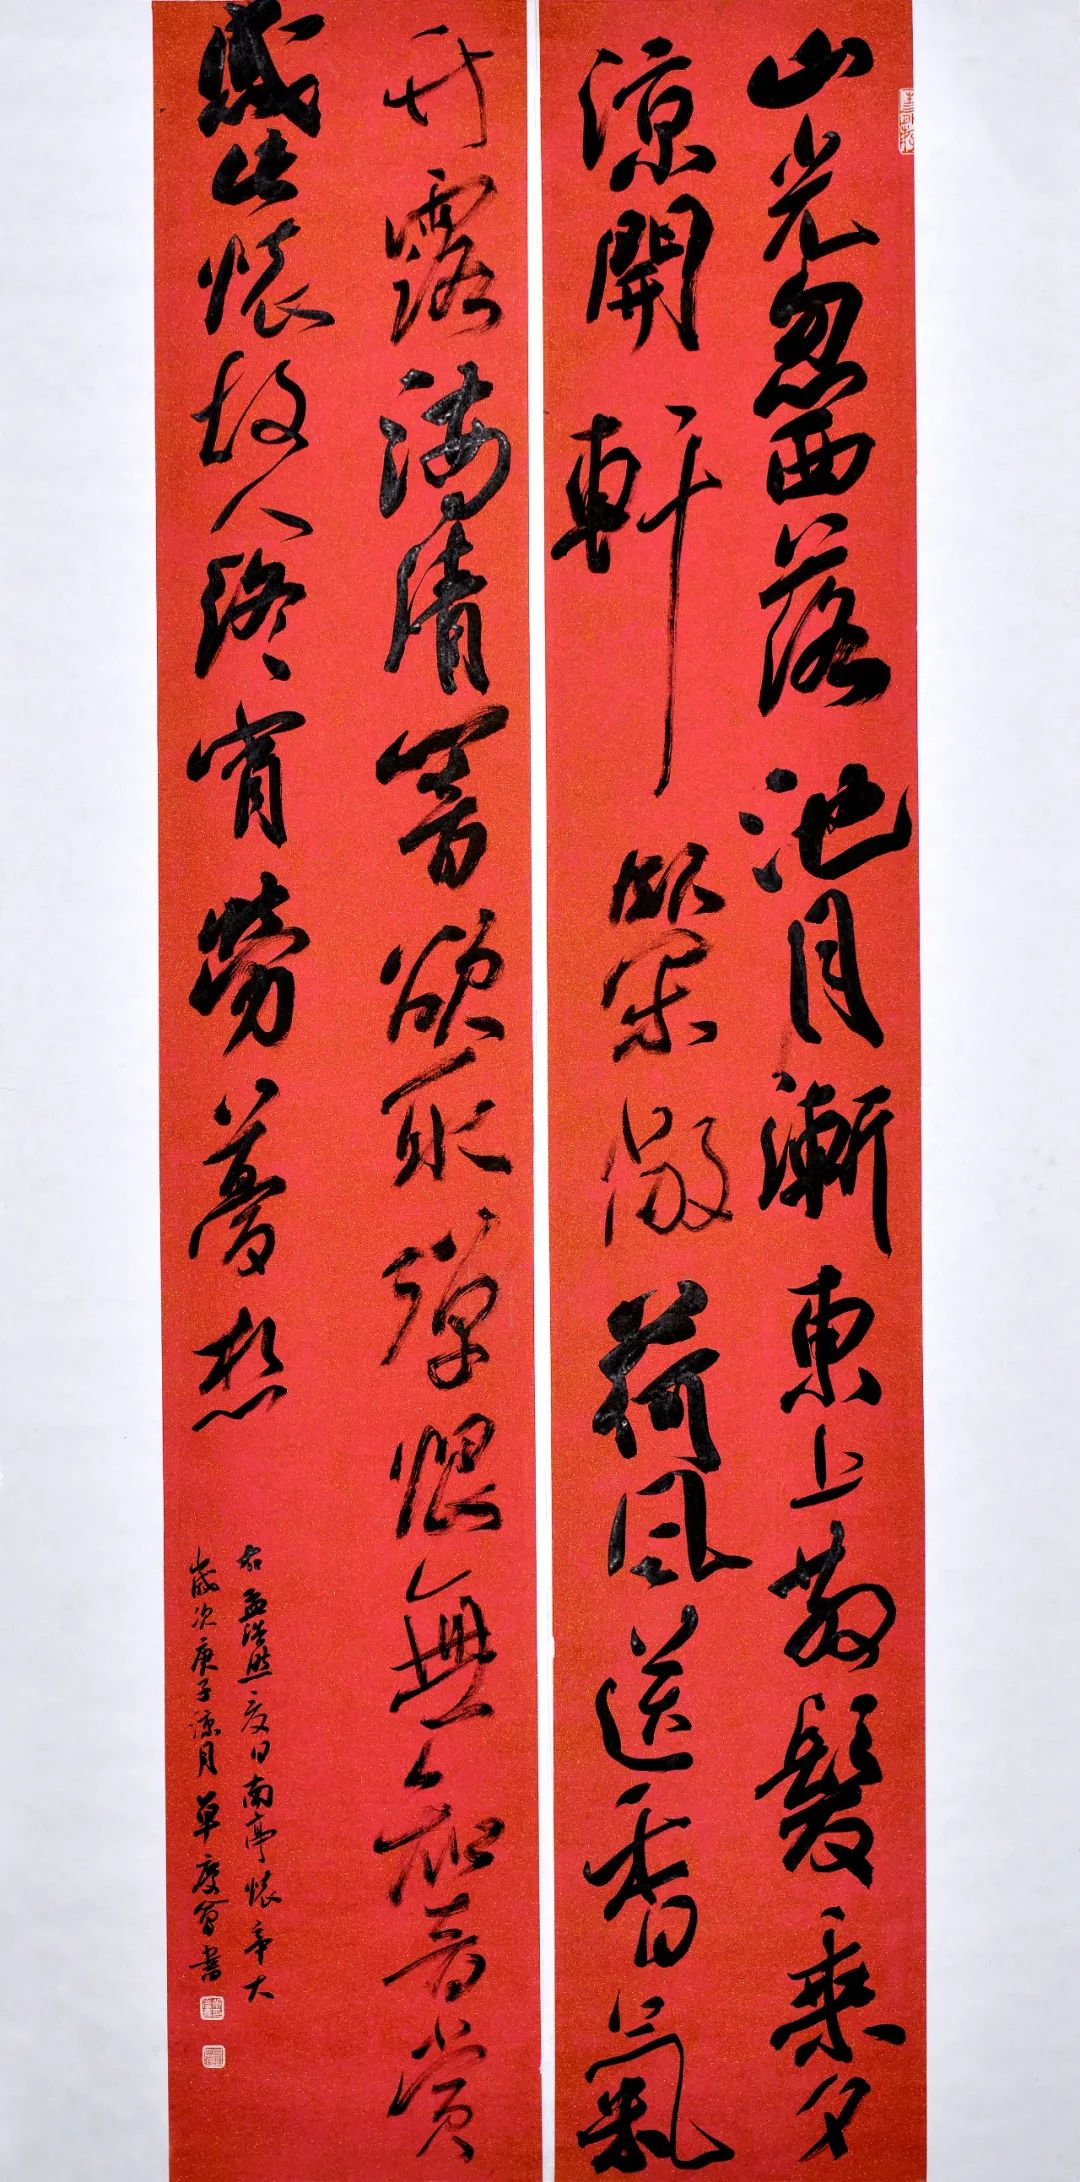 山光忽西落池月漸東上散髮乘夕
涼開軒臥閑敞荷風送香氣
竹露滴清響欲取彈恨無知音賞
感此懷故人終宵勞夢想
右孟浩然夏日南亭懷辛大
歲次庚子涼月草書